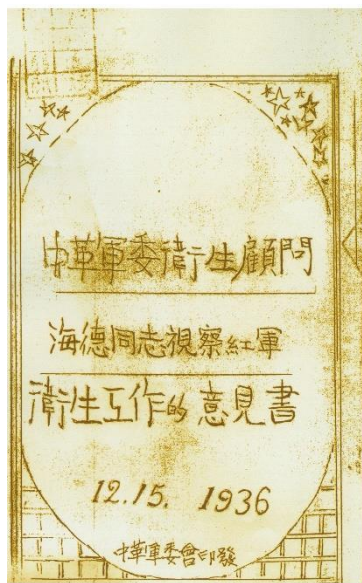 中革軍委衛生顧問
海德同志視察紅軍
衛生工作的意見書
12.15. 1936
中革軍委會印發